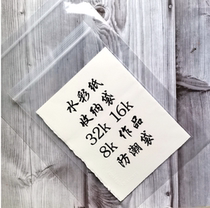 水彩纸
收纳袋
32k 16k
8k 作品
防潮袋